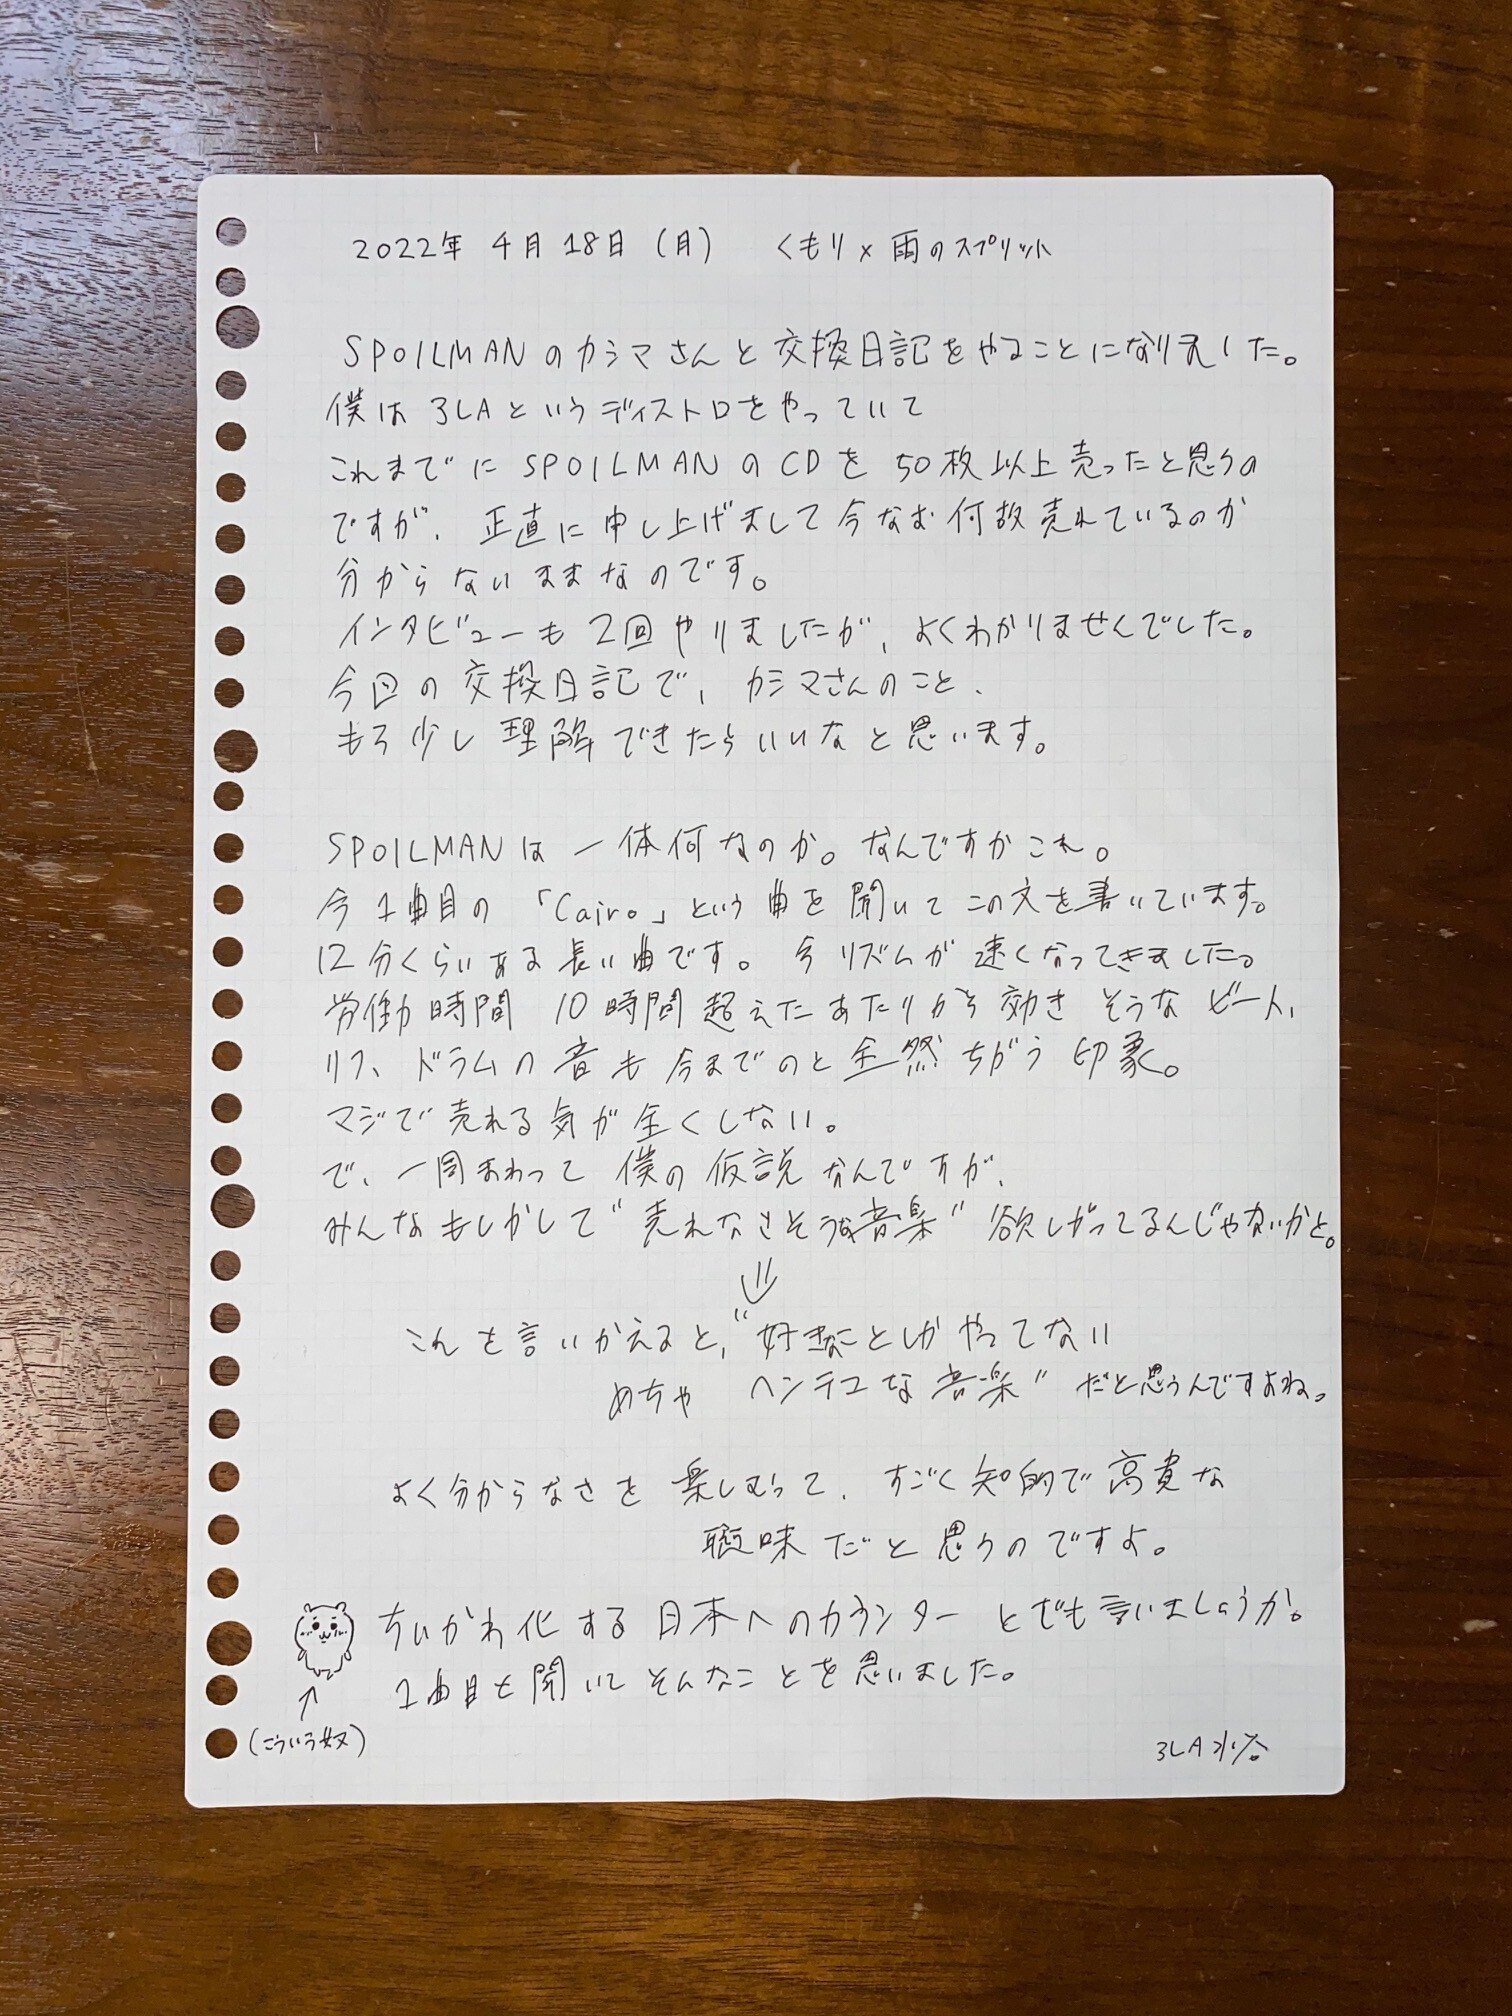 2022年 4月 18日 (月) くもり×雨のスプリット
SPOILMANのカシマさんと交換日記をやることになりました。
僕は3LAというディストロをやっていて
これまでにSPOILMANのCDを50枚以上売ったと思うの
ですが、正直に申し上げまして今なお何故売れているのか
分からないままなのです。
インタビューも2回やりましたが、よくわかりませんでした。
今回の交換日記で、カシマさんのこと、
もう少し理解できたらいいなと思います。
SPOILMANは一体何なのか。なんですかこれ。
今1曲目の「Cairo」という曲を聞いてこの文を書いています。
12分くらいある長い曲です。今リズムが速くなってきました。
労働時間 10時間超えたあたりから効きそうなビート、
リフ、ドラムの音も今までのと全然ちがう印象。
マジで売れる気が全くしない。
で、一周まわって僕の仮説なんですが、
みんなもしかして"売れなさそうな音楽"欲しがってるんじゃないかと。
⇓
これを言いかえると、"好きなことしかやってない
めちゃ ヘンテコな音楽"だと思うんですよね。
よく分からなさを楽しむって、すごく知的で高貴な
趣味だと思うのですよ。
ちいかわ化する日本へのカウンターとでも言いましょうか。
1曲目を聞いてそんなことを思いました。
↑
(こういう奴)
3LA水谷